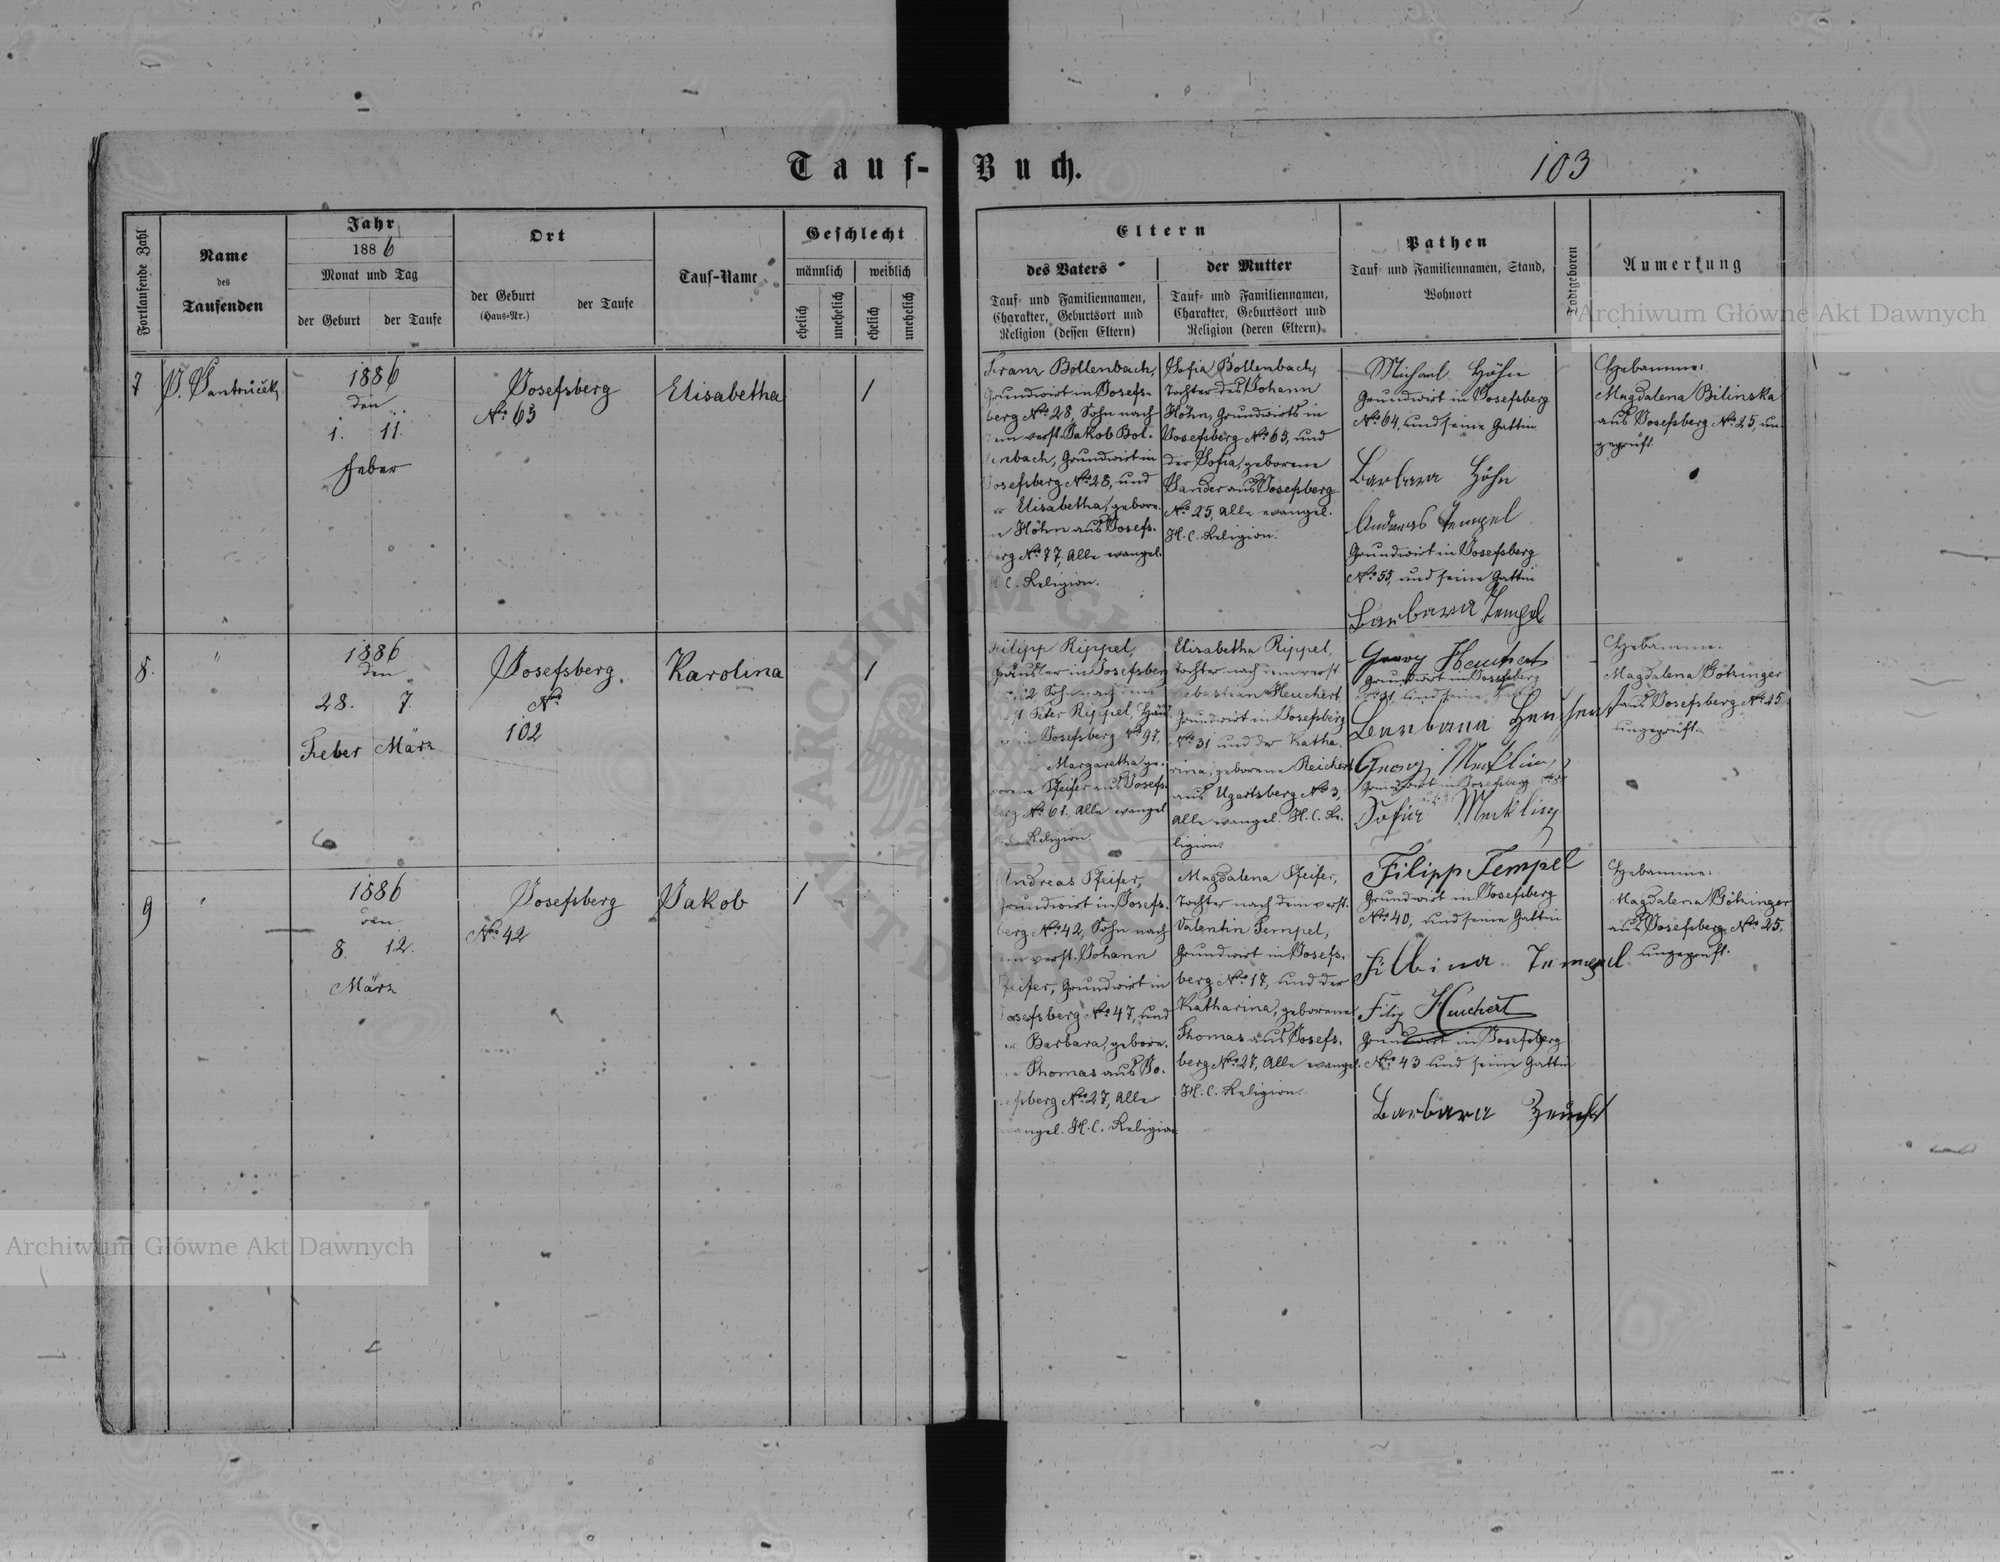 Tauf-Buch.
103
Fortlaufende Zahl
Name
des
Taufenden
Jahr
1886
Monat und Tag
der Geburt
der Taufe
Ort
der Geburt
(Haus-Nr.)
der Taufe
Tauf-Name
Geschlecht
männlich
weiblich
ehelich
unehelich
ehelich
unehelich
Eltern
des Vaters
Tauf- und Familiennamen,
Charakter, Geburtsort und
Religion (dessen Eltern)
der Mutter
Tauf- und Familiennamen,
Charakter, Geburtsort und
Religion (deren Eltern)
Pathen
Tauf- und Familiennamen, Stand,
Wohnort
Todtgeboren
Anmerkung
7
1886
den
1. 11.
Feber
Josefsberg
No 63
Elisabetha
1
Franz Bollenbach,
Grundwirt in Josefs-
berg No 28, Sohn nach
verst. Jakob Bol-
lenbach, Grundwirt in
Josefsberg No 28, und
Elisabetha, gebore-
Höhn aus Josefs-
berg No 77, Alle evangel.
H. C. Religion.
Sofia Bollenbach,
Tochter des Johann
Höhn, Grundwirts in
Josefsberg No 63, und
der Sofia, geborene
Sander aus Josefsberg
No 25, Alle evangel.
H. C. Religion.
Michael Höhn
Grundwirt in Josefsberg
No 64, und seine Gattin
Barbara Höhn
Andreas Tempel
Grundwirt in Josefsberg
No 55, und seine Gattin
Barbara Tempel
Hebamme:
Magdalena Bilinska
aus Josefsberg No 25, un-
geprüft
8.
"
1886
den
28. 7.
Feber März
Josefsberg.
No
102
Karolina
1
Filipp Rippel,
Häusler in Josefsberg
Sohn nach
Peter Rippel, Häus-
in Josefsberg No 97,
Margaretha ge-
borene Pfeifer aus Josefs-
berg No 61, Alle evangel.
Religion.
Elisabetha Rippel,
Tochter nach dem verst.
Sebastian Heuchert
Grundwirt in Josefsberg
No 31 und der Katha-
rina, geborene Reichert
aus Ugartsberg No 3,
Alle evangel. H. C. Re-
ligion.
Georg Heuchert
Grundwirt in Josefsberg
No 31, und seine
Georg Meckling
Grundwirt in Josefsberg
Sofia Meckling
Hebamme:
Magdalena Götzinger
aus Josefsberg No 25,
ungeprüft.
9
"
1886
den
8. 12.
März
Josefsberg
No 42
Jakob
1
Andreas Pfeifer,
Grundwirt in Josefs-
berg No 42, Sohn nach
dem verst. Johann
Pfeifer, Grundwirt in
Josefsberg No 47, und
Barbara, gebore-
Thomas aus Jo-
sefsberg No 27, Alle
evangel. H. C. Religion
Magdalena Pfeifer,
Tochter nach dem verst.
Valentin Tempel,
Grundwirt in Josefs-
berg No 17, und der
Katharina, geborene
Thomas aus Josefs-
berg No 27, Alle evangel.
H. C. Religion.
Filipp Tempel
Grundwirt in Josefsberg
No 40, und seine Gattin
Filbina Tempel
Filip Heuchert
Grundwirt in Josefsberg
No 43 und seine Gattin
Barbara
Hebamme:
Magdalena Götzinger
aus Josefsberg No 25,
ungeprüft.
Archiwum Główne Akt Dawnych
Archiwum Główne Akt Dawnych